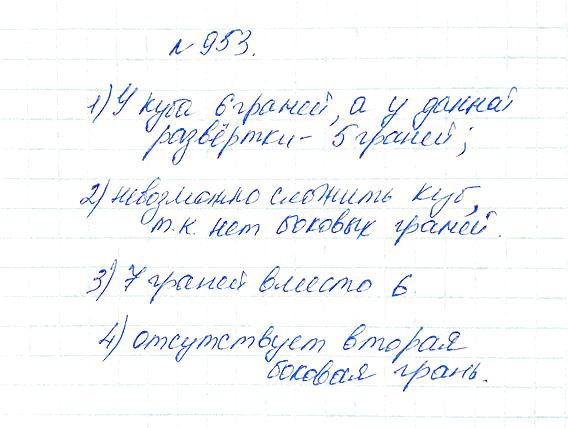 № 953.
1) У куба 6 граней, а у данной
развёртки - 5 граней;
2) невозможно сложить куб,
т.к. нет боковых граней.
3) 7 граней вместо 6.
4) отсутствует вторая
боковая грань.